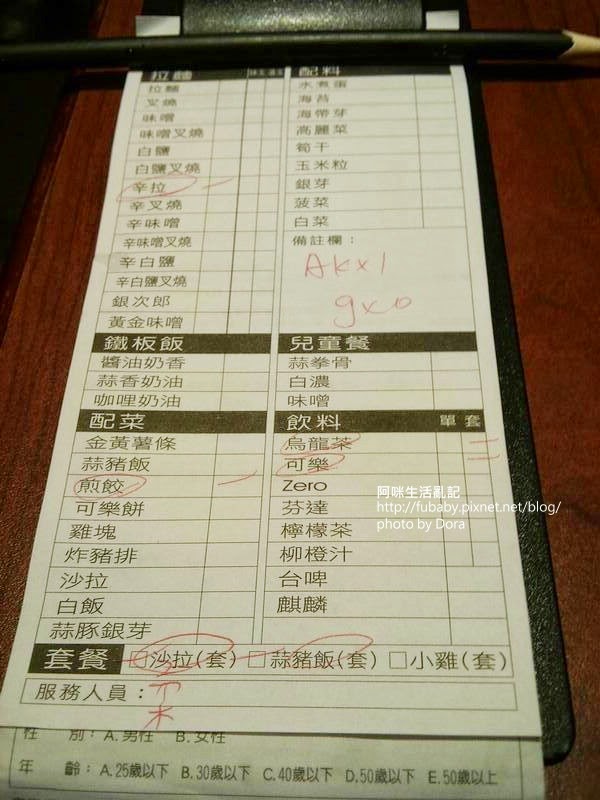 拉麵
拉麵
叉燒
味噌
味噌叉燒
白鹽
白鹽叉燒
辛拉
辛叉燒
辛味噌
辛味噌叉燒
辛白鹽
辛白鹽叉燒
銀次郎
黃金味噌
配料
水煮蛋
海苔
海帶芽
高麗菜
筍干
玉米粒
銀芽
菠菜
白菜
備註欄：
AKx1
9x0
鐵板飯
醬油奶香
蒜香奶油
咖哩奶油
兒童餐
蒜拳骨
白濃
味噌
配菜
金黃薯條
蒜豬飯
煎餃
可樂餅
雞塊
炸豬排
沙拉
白飯
蒜豚銀芽
飲料 單 套
烏龍茶
可樂
Zero
芬達
檸檬茶
柳橙汁
台啤
麒麟
阿咪生活亂記
http://fubaby.pixnet.net/blog/
photo by Dora
套餐 □沙拉(套) □蒜豬飯(套) □小雞(套)
服務人員：
性 別：A.男性 B.女性
年 齡：A.25歲以下 B.30歲以下 C.40歲以下 D.50歲以下 E.50歲以上